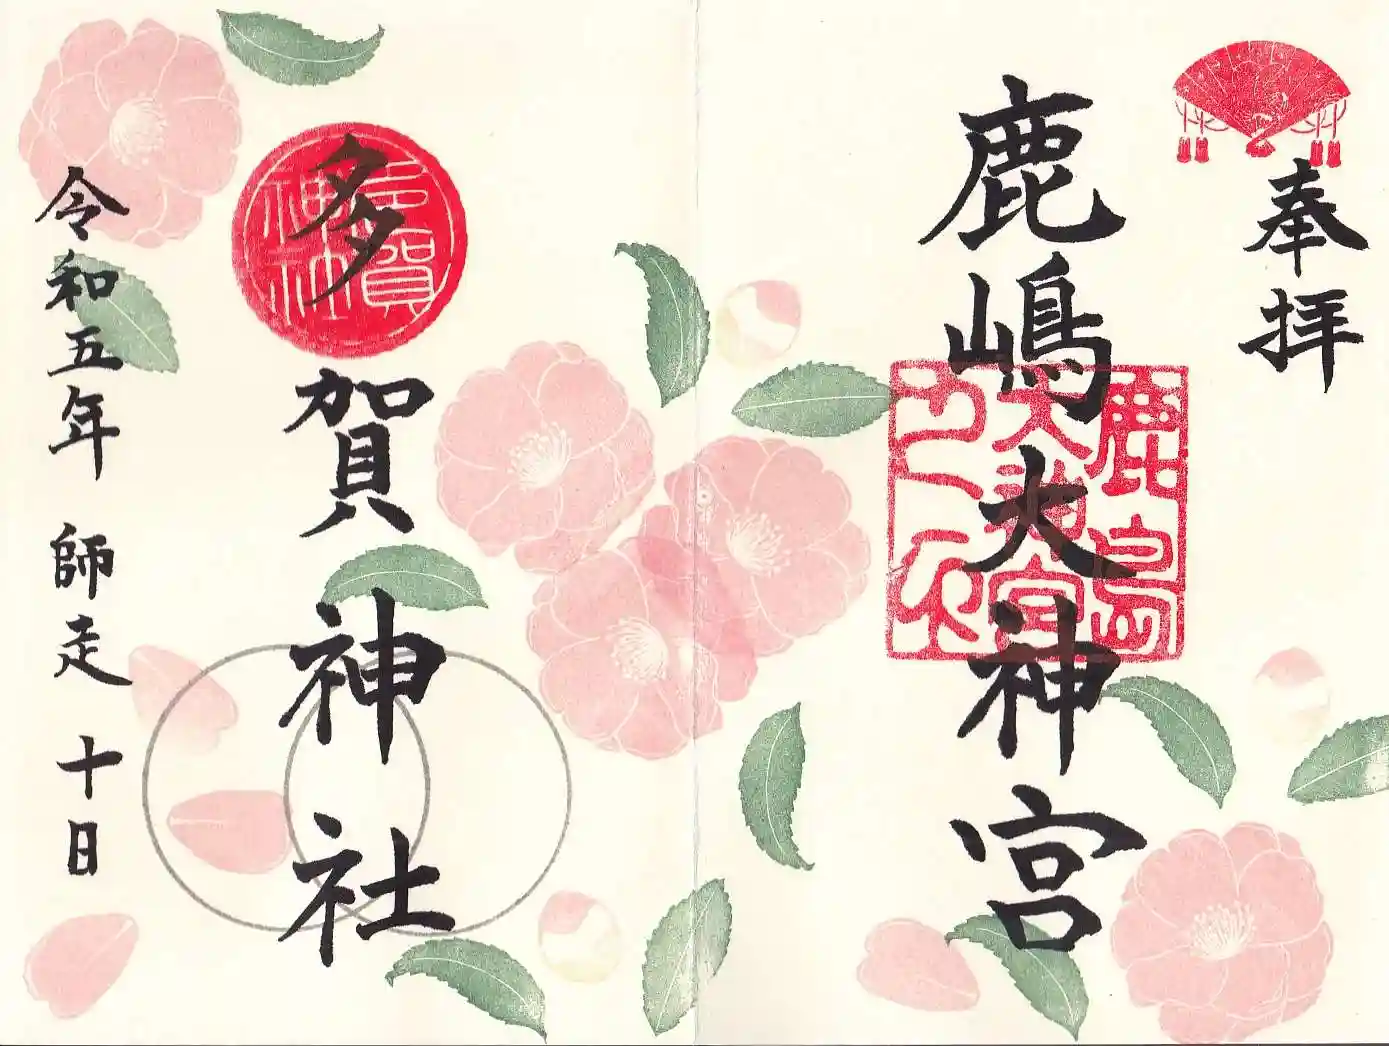 奉拝
鹿嶋大神宮
鹿島
大神宮
多賀神社
多賀
神社
令和五年 師走 十日